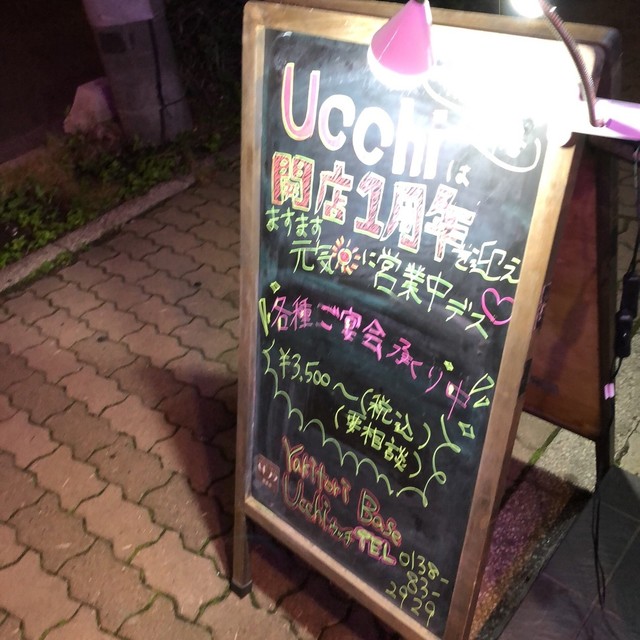 Ucchiは
開店1周年を迎え
ますます
元気に営業中デス
各種ご宴会承り中
¥3,500〜(税込)
(要相談)
Yakitori Base
Ucchi
TEL 0138-
83-
2929